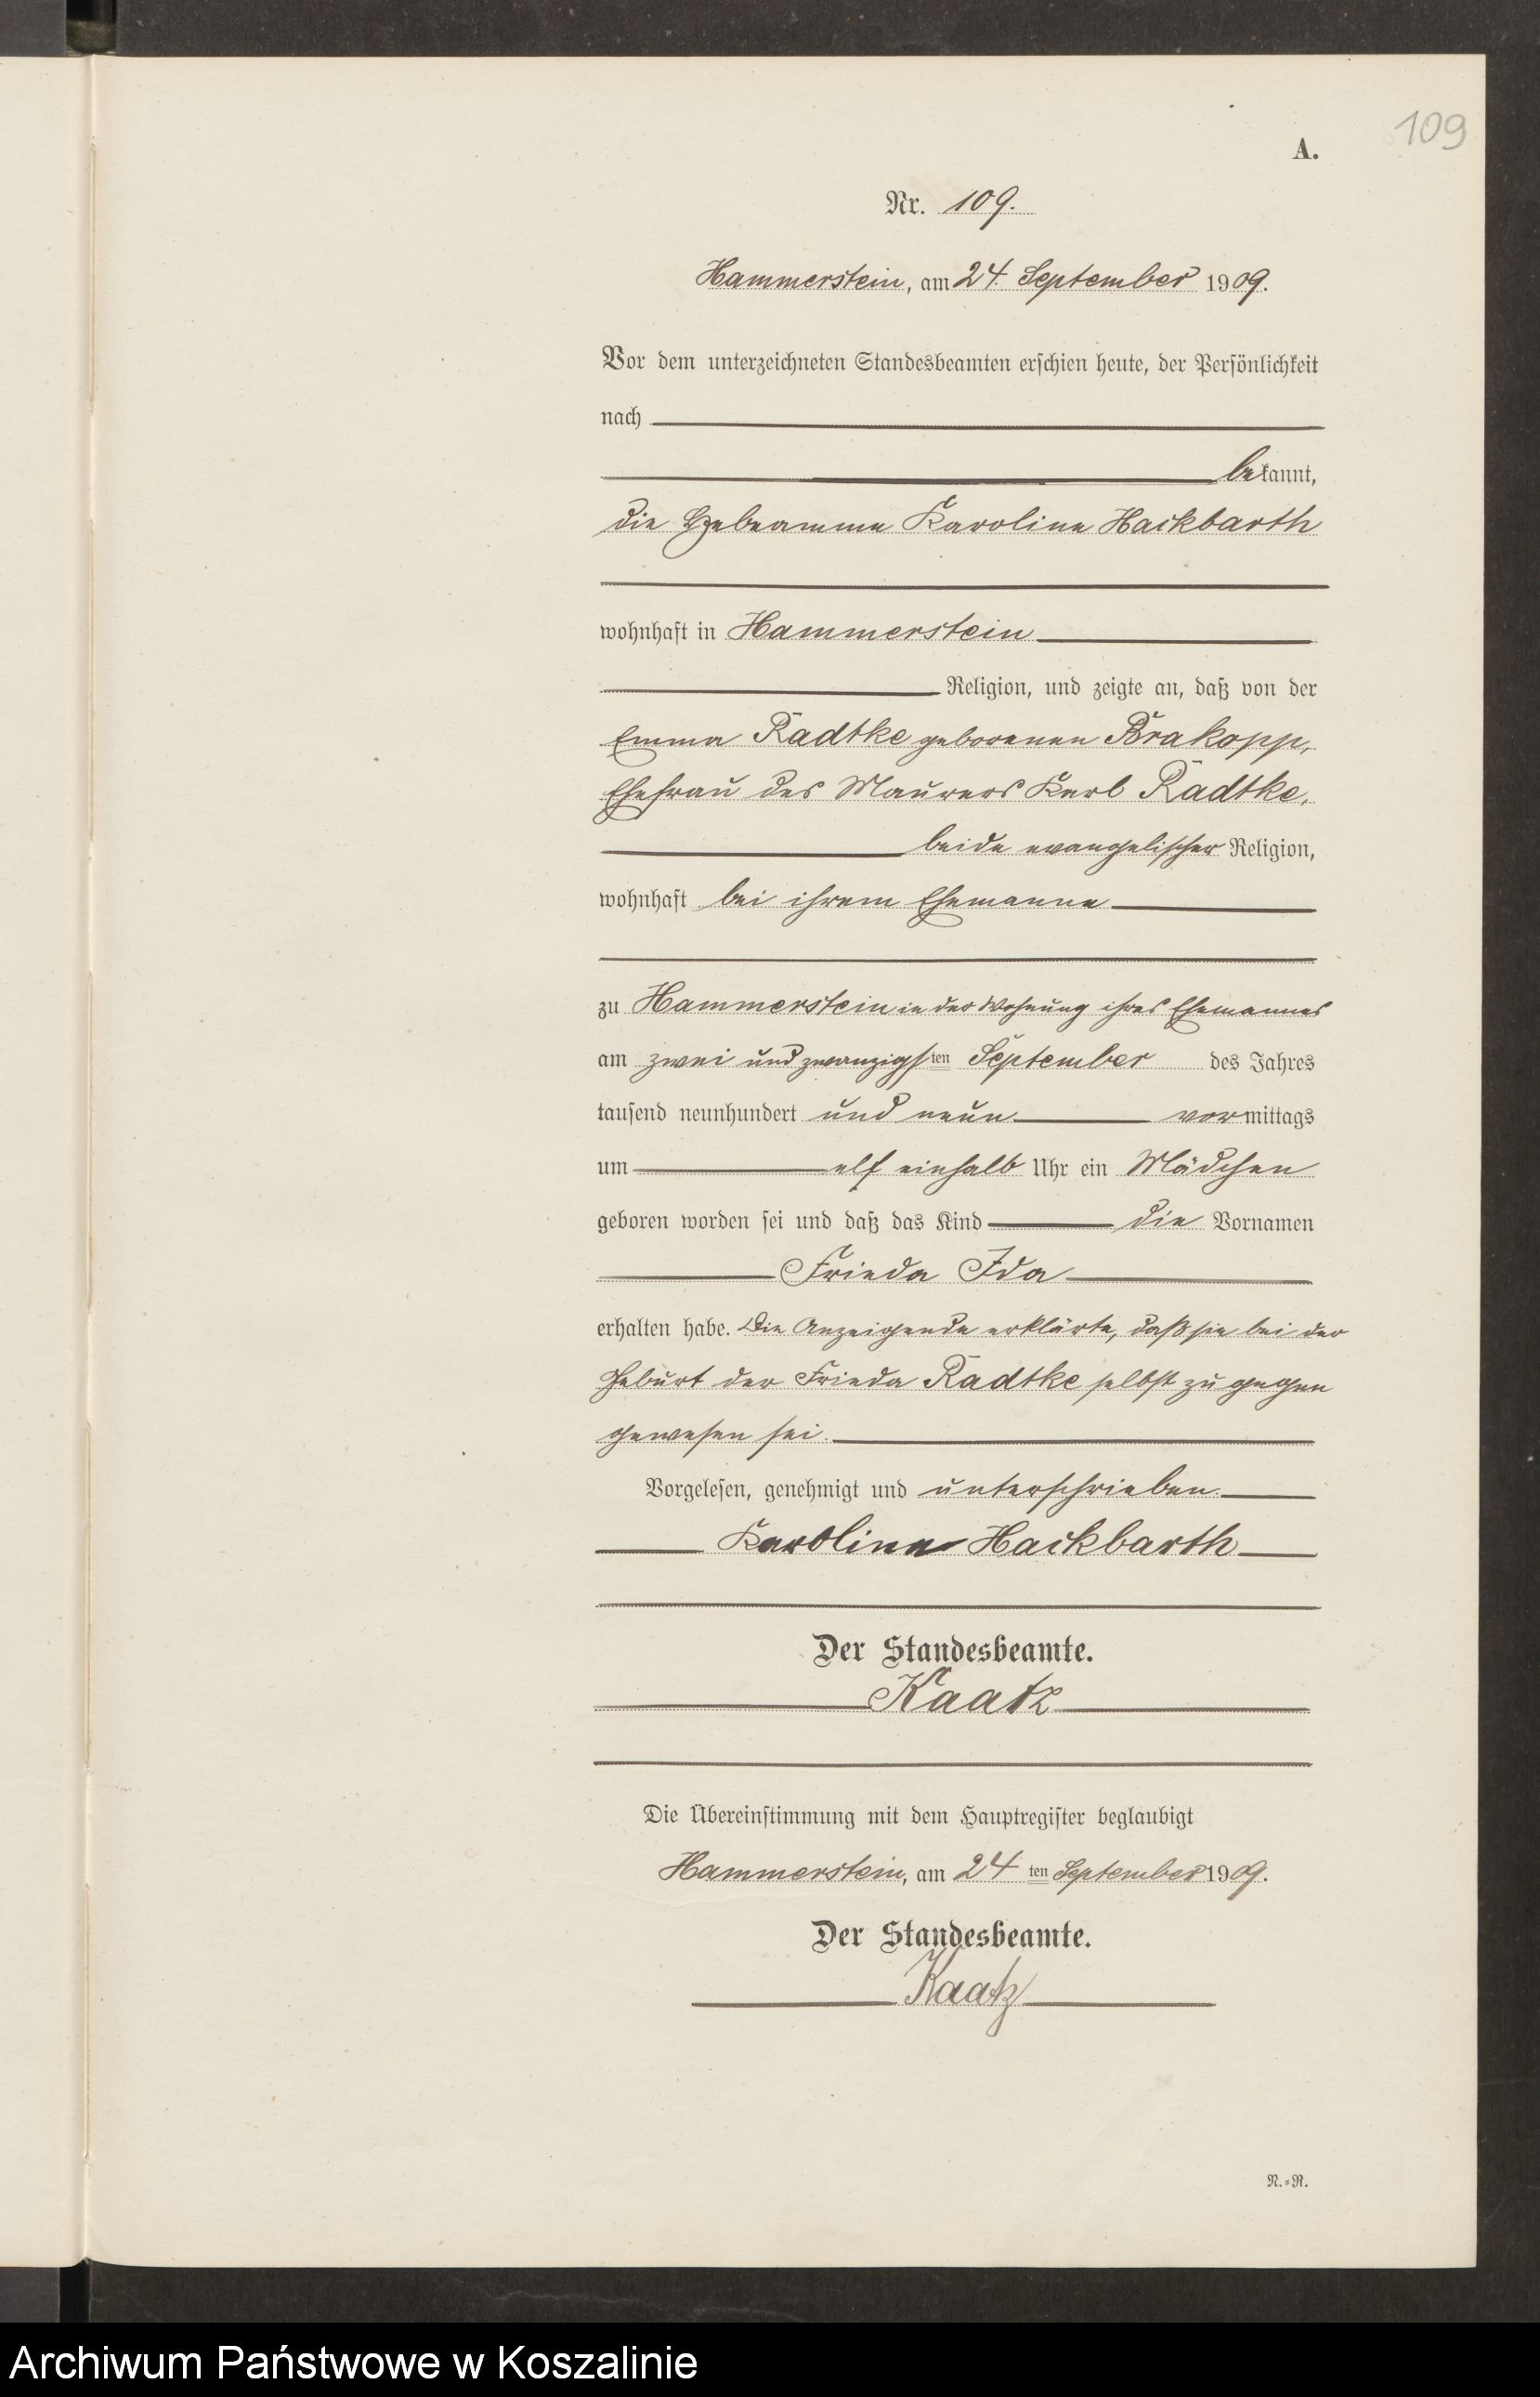 109
A.
Nr. 109.
Hammerstein, am 24. September 1909.
Vor dem unterzeichneten Standesbeamten erschien heute, der Persönlichkeit
nach
bekannt,
die Hebeamme Karoline Hackbarth
wohnhaft in Hammerstein
Religion, und zeigte an, daß von der
Emma Radtke geborenen Brakopp,
Ehefrau des Maurers Karl Radtke,
beide evangelischer Religion,
wohnhaft bei ihrem Ehemanne
zu Hammerstein in der Wohnung ihres Ehemannes
am zwei und zwanzigsten September des Jahres
tausend neunhundert und neun vormittags
um elf einhalb Uhr ein Mädchen
geboren worden sei und daß das Kind die Vornamen
Frieda Ida
erhalten habe. Die Anzeigende erklärte, daß sie bei der
Geburt der Frieda Radtke selbst zu gegen
gewesen sei.
Vorgelesen, genehmigt und unterschrieben.
Karoline Hackbarth
Der Standesbeamte.
Kaatz
Die Übereinstimmung mit dem Hauptregister beglaubigt
Hammerstein, am 24ten September 1909.
Der Standesbeamte.
Kaatz
N.=R.
Archiwum Państwowe w Koszalinie